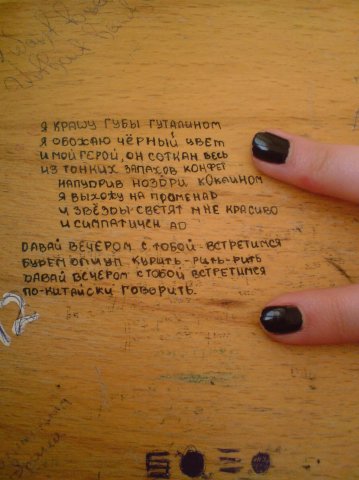 Я КРАШУ ГУБЫ ГУТАЛИНОМ
Я ОБОЖАЮ ЧЁРНЫЙ ЦВЕТ
И МОЙ ГЕРОЙ, ОН СОТКАН ВЕСЬ
ИЗ ТОНКИХ ЗАПАХОВ КОНФЕТ
НАПУДРИВ НОЗДРИ КОКАИНОМ
Я ВЫХОЖУ НА ПРОМЕНАД
И ЗВЁЗДЫ СВЕТЯТ МНЕ КРАСИВО
И СИМПАТИЧЕН АД
ДАВАЙ ВЕЧЕРОМ С ТОБОЙ ВСТРЕТИМСЯ
БУДЕМ ОПИУМ КУРИТЬ-РИТЬ-РИТЬ
ДАВАЙ ВЕЧЕРОМ С ТОБОЙ ВСТРЕТИМСЯ
ПО-КИТАЙСКИ ГОВОРИТЬ.
12